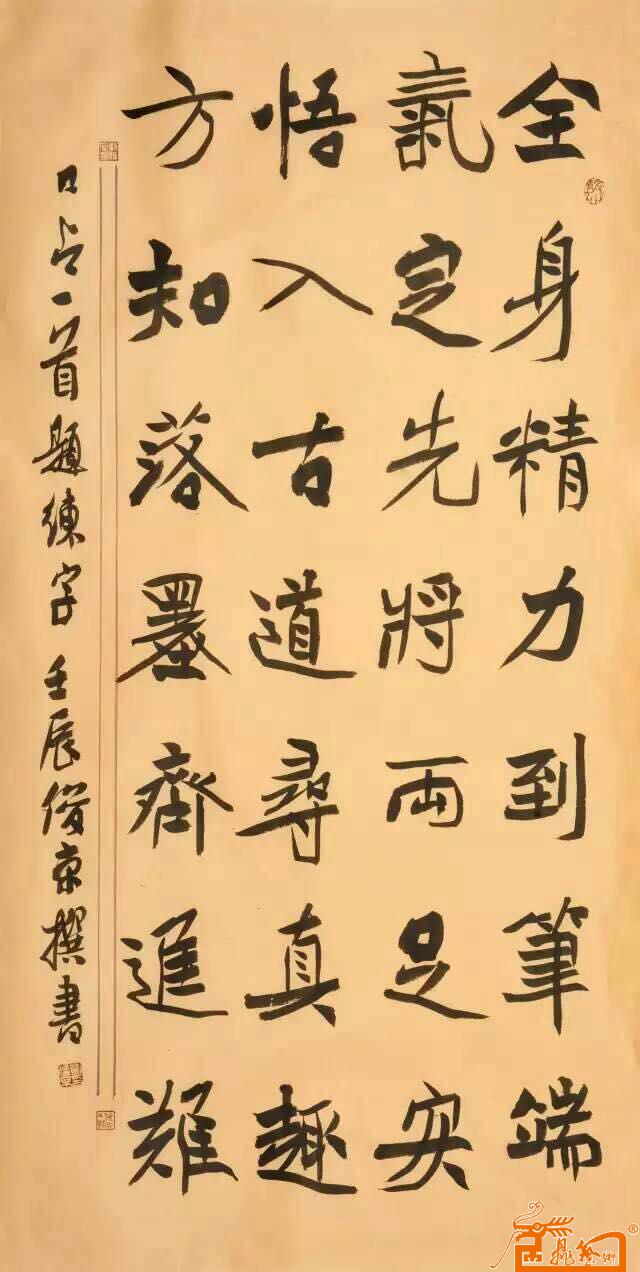 全身精力到筆端
氣定先將兩足安
悟入古道尋真趣
方知落墨齊進難
口占一首題練字 壬辰俊東撰書